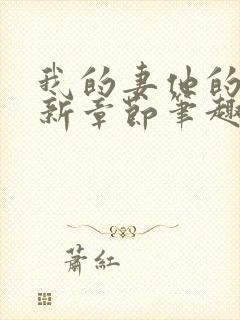 我的妻他的
新章節筆趣
蕭紅